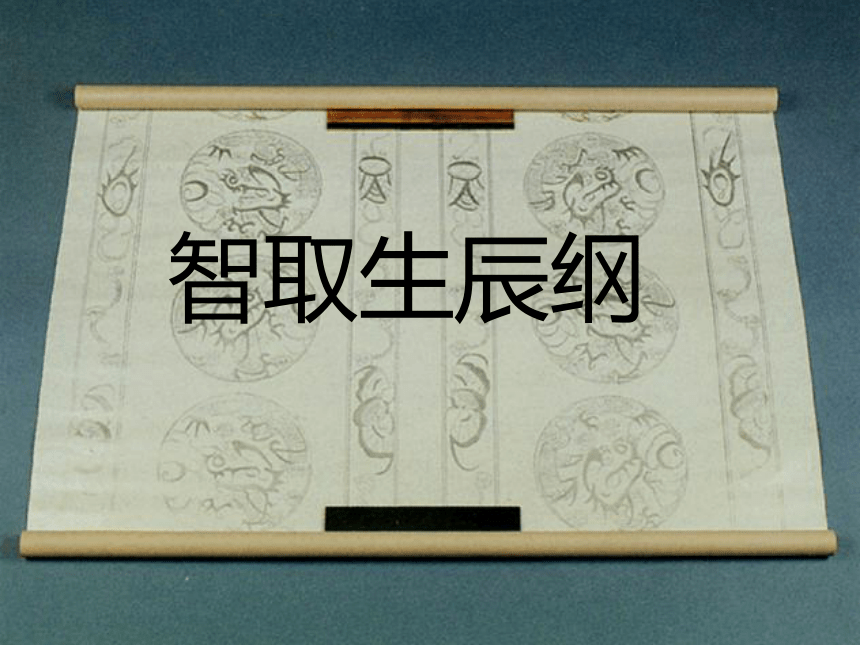 智取生辰纲